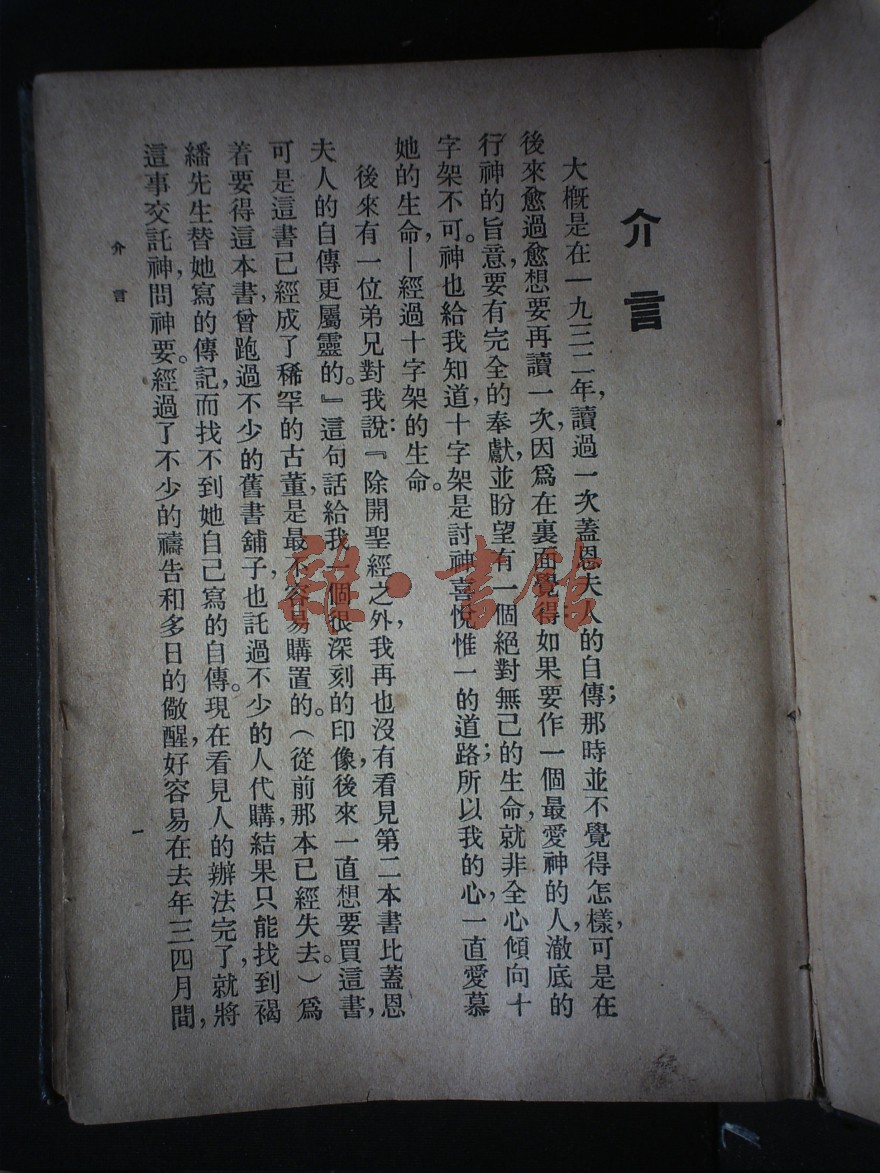 介言
大概是在一九三二年，讀過一次蓋恩夫人的自傳；那時並不覺得怎樣，可是在
後來愈過愈想要再讀一次，因爲在裏面覺得如果要作一個最愛神的人，澈底的
行神的旨意，要有完全的奉獻，並盼望有一個絕對無己的生命，就非全心傾向十
字架不可。神也給我知道，十字架是討神喜悅惟一的道路；所以我的心，一直愛慕
她的生命，—經過十字架的生命。
後來有一位弟兄對我說：『除開聖經之外，我再也沒有看見第二本書比蓋恩
夫人的自傳更屬靈的。』這句話給我一個很深刻的印像，後來一直想要買這書，
可是這書已經成了稀罕的古董，是最不容易購置的。（從前那本已經失去。）爲
着要得這本書，曾跑過不少的舊書舖子，也託過不少的人代購，結果只能找到褐
繙先生替她寫的傳記，而找不到她自己寫的自傳。現在看見人的辦法完了，就將
這事交託神，問神要。經過了不少的禱告和多日的儆醒，好容易在去年三四月間，
介言
一
雜·書館